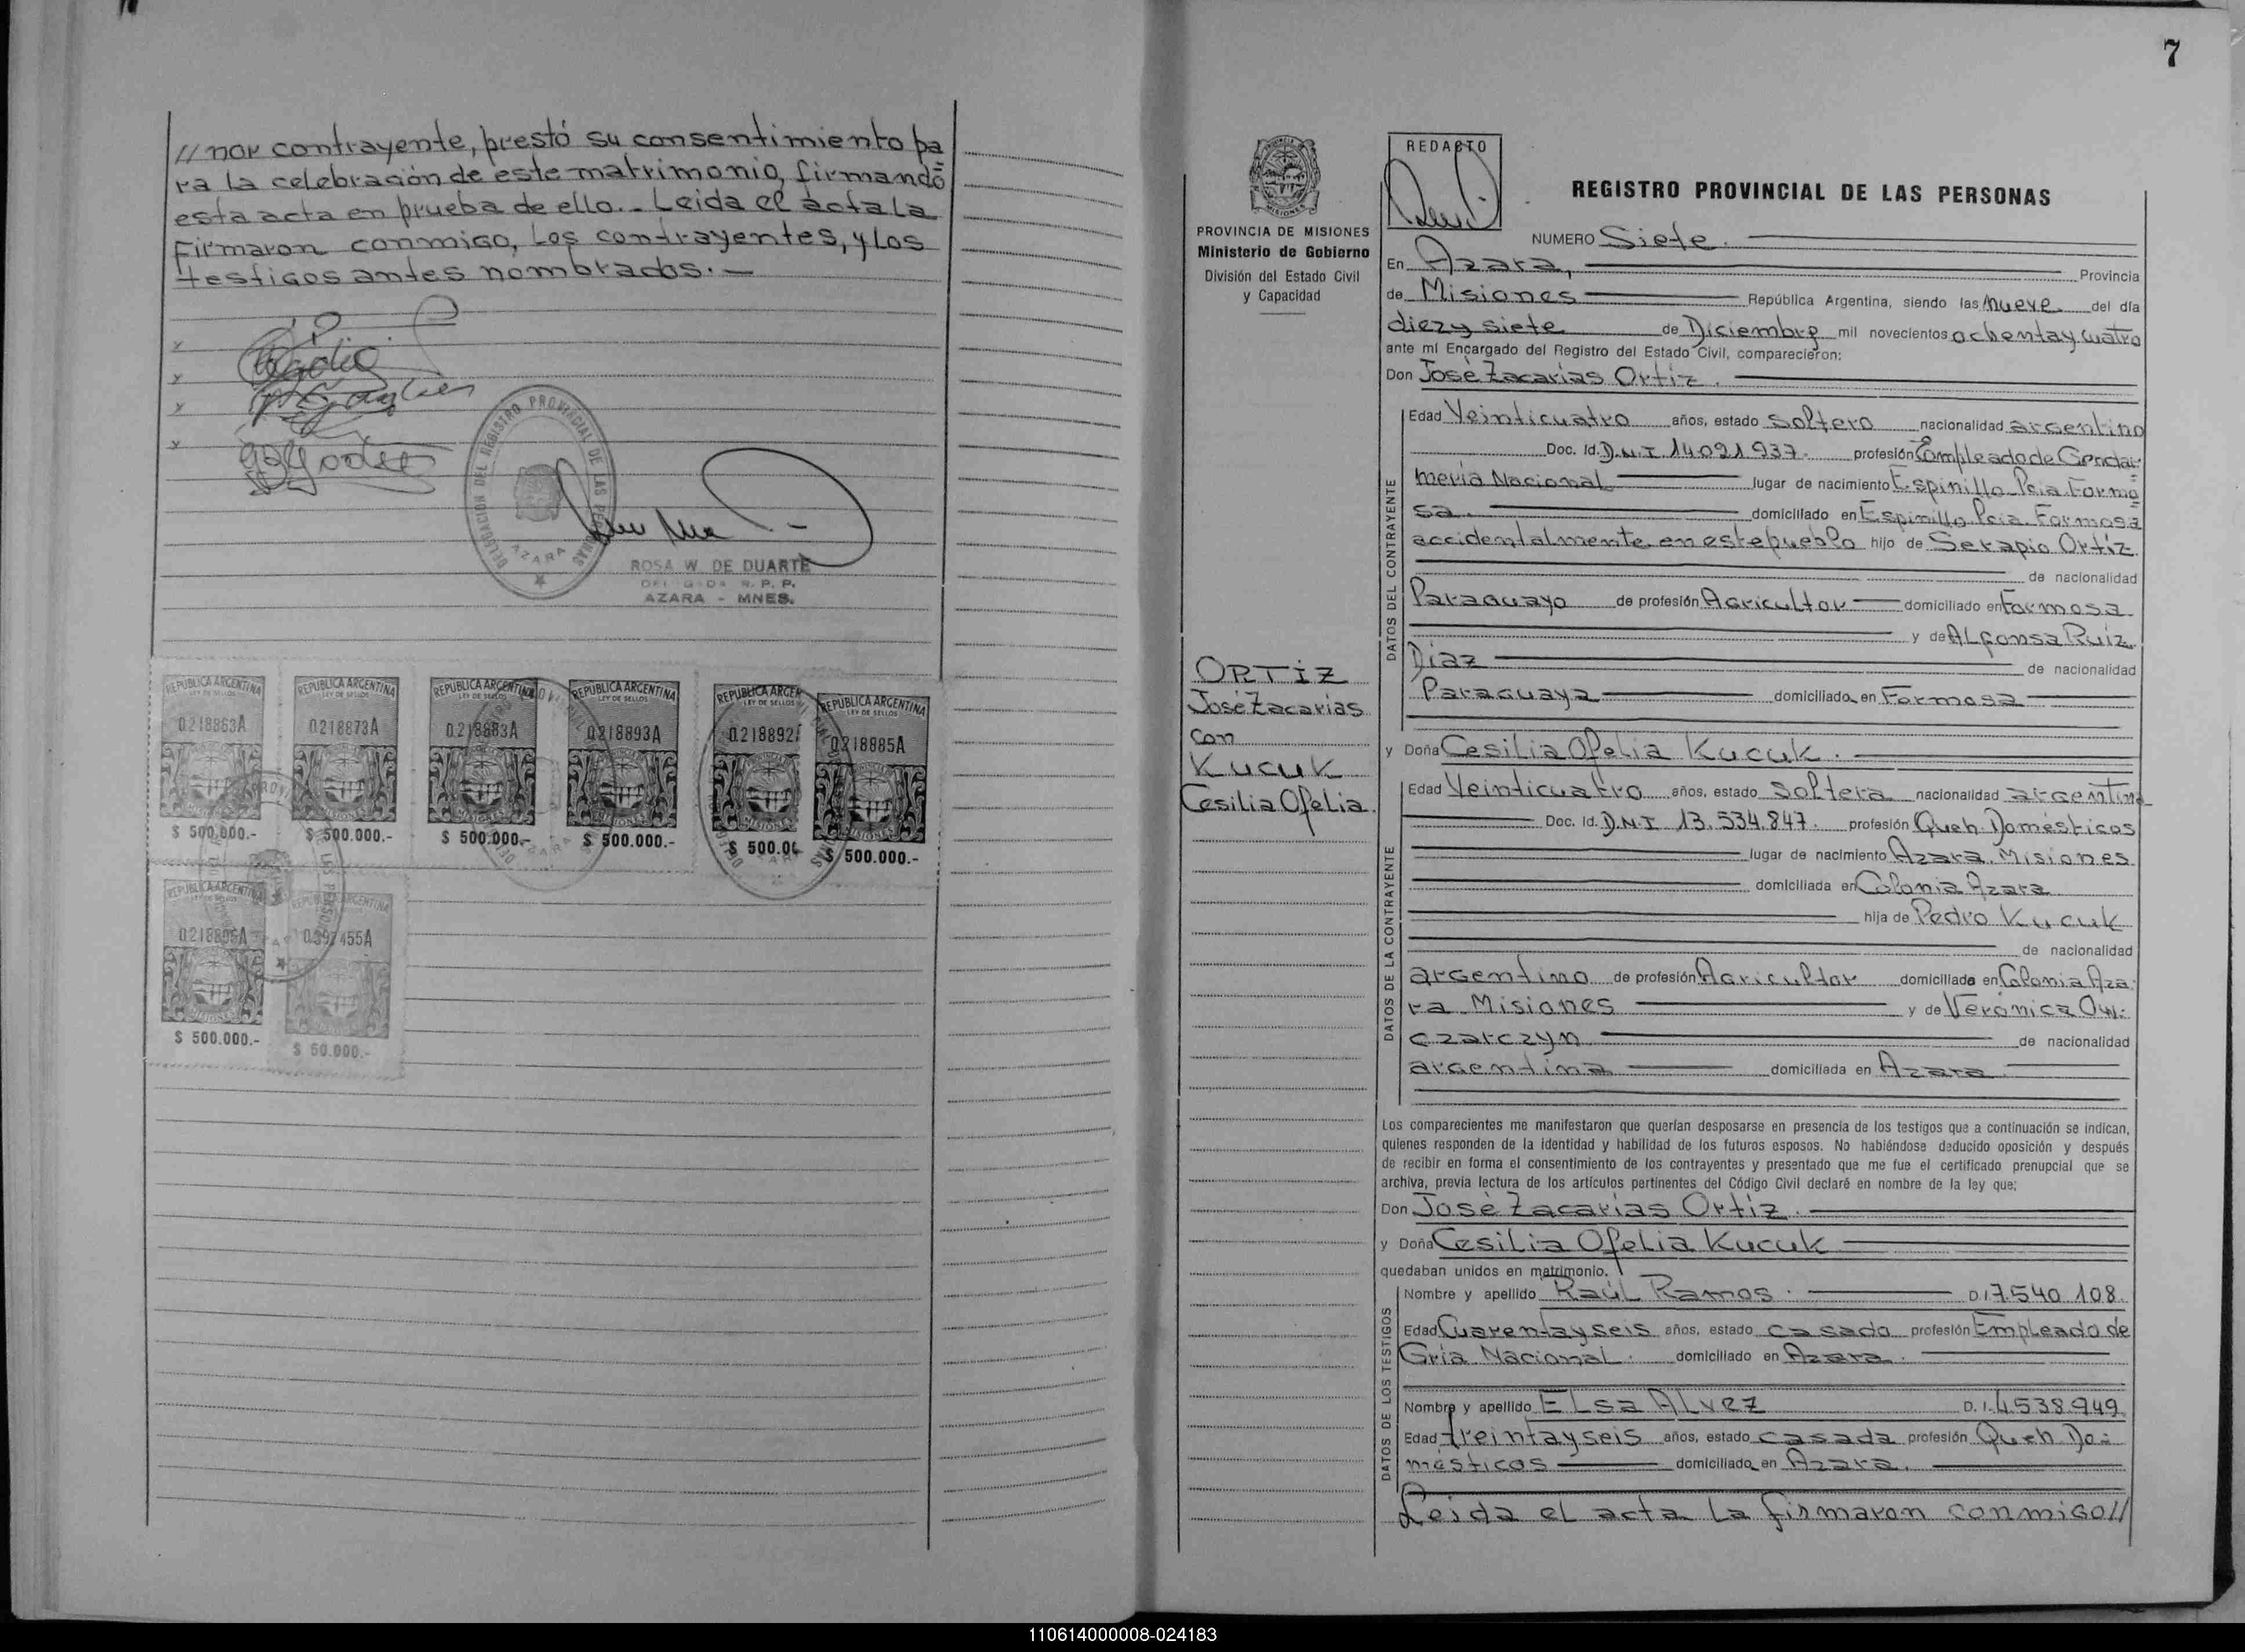 // nor contrayente, prestó su consentimiento pa
ra la celebración de este matrimonio, firmando
esta acta en prueba de ello.- Leida el acta la
firmaron conmigo, los contrayentes, y los
testigos antes nombrados.-
DELEGACION DEL REGISTRO PROVINCIAL DE LAS PERSONAS
AZARA
ROSA W. DE DUARTE
R. P. P.
AZARA - MNES.
REPUBLICA ARGENTINA REPUBLICA ARGENTINA REPUBLICA ARGENTINA REPUBLICA ARGENTINA REPUBLICA ARGEN REPUBLICA ARGENTINA
LEY DE SELLOS LEY DE SELLOS LEY DE SELLOS LEY DE SELLOS LEY DE SELLOS LEY DE SELLOS
0.218863A 0.218873A 0.218883A 0.218893A 0.218892 0.218885A
MISIONES MISIONES MISIONES MISIONES MISIONES MISIONES
$ 500.000.- $ 500.000.- $ 500.000.- $ 500.000.- $ 500.0 $ 500.000.-
REPUBLICA ARGENTINA REPUBLICA ARGENTINA
$ 500.000.- $ 50.000.-
7
PROVINCIA DE MISIONES
Ministerio de Gobierno
División del Estado Civil
y Capacidad
ORTIZ
José Zacarías
con
KUCUK
Cesilia Ofelia
REDACTO
REGISTRO PROVINCIAL DE LAS PERSONAS
NUMERO Siete.
En Azara, Provincia
de Misiones República Argentina, siendo las nueve del día
diez y siete de Diciembre mil novecientos ochenta y cuatro
ante mí Encargado del Registro del Estado Civil, comparecieron:
Don José Zacarías Ortiz.
DATOS DEL CONTRAYENTE
Edad Veinticuatro años, estado soltero nacionalidad argentino
Doc. Id. D.N.I. 14.021.937. profesión Empleado de Gendar-
mería Nacional lugar de nacimiento Espinillo Pcia. Formo
sa. domiciliado en Espinillo Pcia. Formosa
accidentalmente en este pueblo hijo de Serapio Ortíz
de nacionalidad
Paraguayo de profesión Agricultor domiciliado en Formosa
y de Alfonsa Ruíz
Díaz de nacionalidad
Paraguaya domiciliada en Formosa
y Doña Cesilia Ofelia Kucuk.
DATOS DE LA CONTRAYENTE
Edad Veinticuatro años, estado soltera nacionalidad argentina
Doc. Id. D.N.I 13.534.847. profesión Queh. Domésticos
lugar de nacimiento Azara. Misiones
domiciliada en Colonia Azara
hija de Pedro Kucuk
de nacionalidad
argentino de profesión Agricultor domiciliado en Colonia Aza-
ra. Misiones y de Verónica Ow-
czarczyn de nacionalidad
argentina domiciliada en Azara
Los comparecientes me manifestaron que querían desposarse en presencia de los testigos que a continuación se indican,
quienes responden de la identidad y habilidad de los futuros esposos. No habiéndose deducido oposición y después
de recibir en forma el consentimiento de los contrayentes y presentado que me fue el certificado prenupcial que se
archiva, previa lectura de los artículos pertinentes del Código Civil declaré en nombre de la ley que:
Don José Zacarías Ortiz.
y Doña Cesilia Ofelia Kucuk
quedaban unidos en matrimonio.
DATOS DE LOS TESTIGOS
Nombre y apellido Raúl Ramos. D.I 7.540.108.
Edad Cuarenta y seis años, estado casado profesión Empleado de
Gría Nacional. domiciliado en Azara.
Nombre y apellido Elsa Alvez D.I. 4.538.949
Edad treinta y seis años, estado casada profesión Queh. Do-
mésticos domiciliado en Azara.
Leida el acta la firmaron conmigo//
110614000008-024183